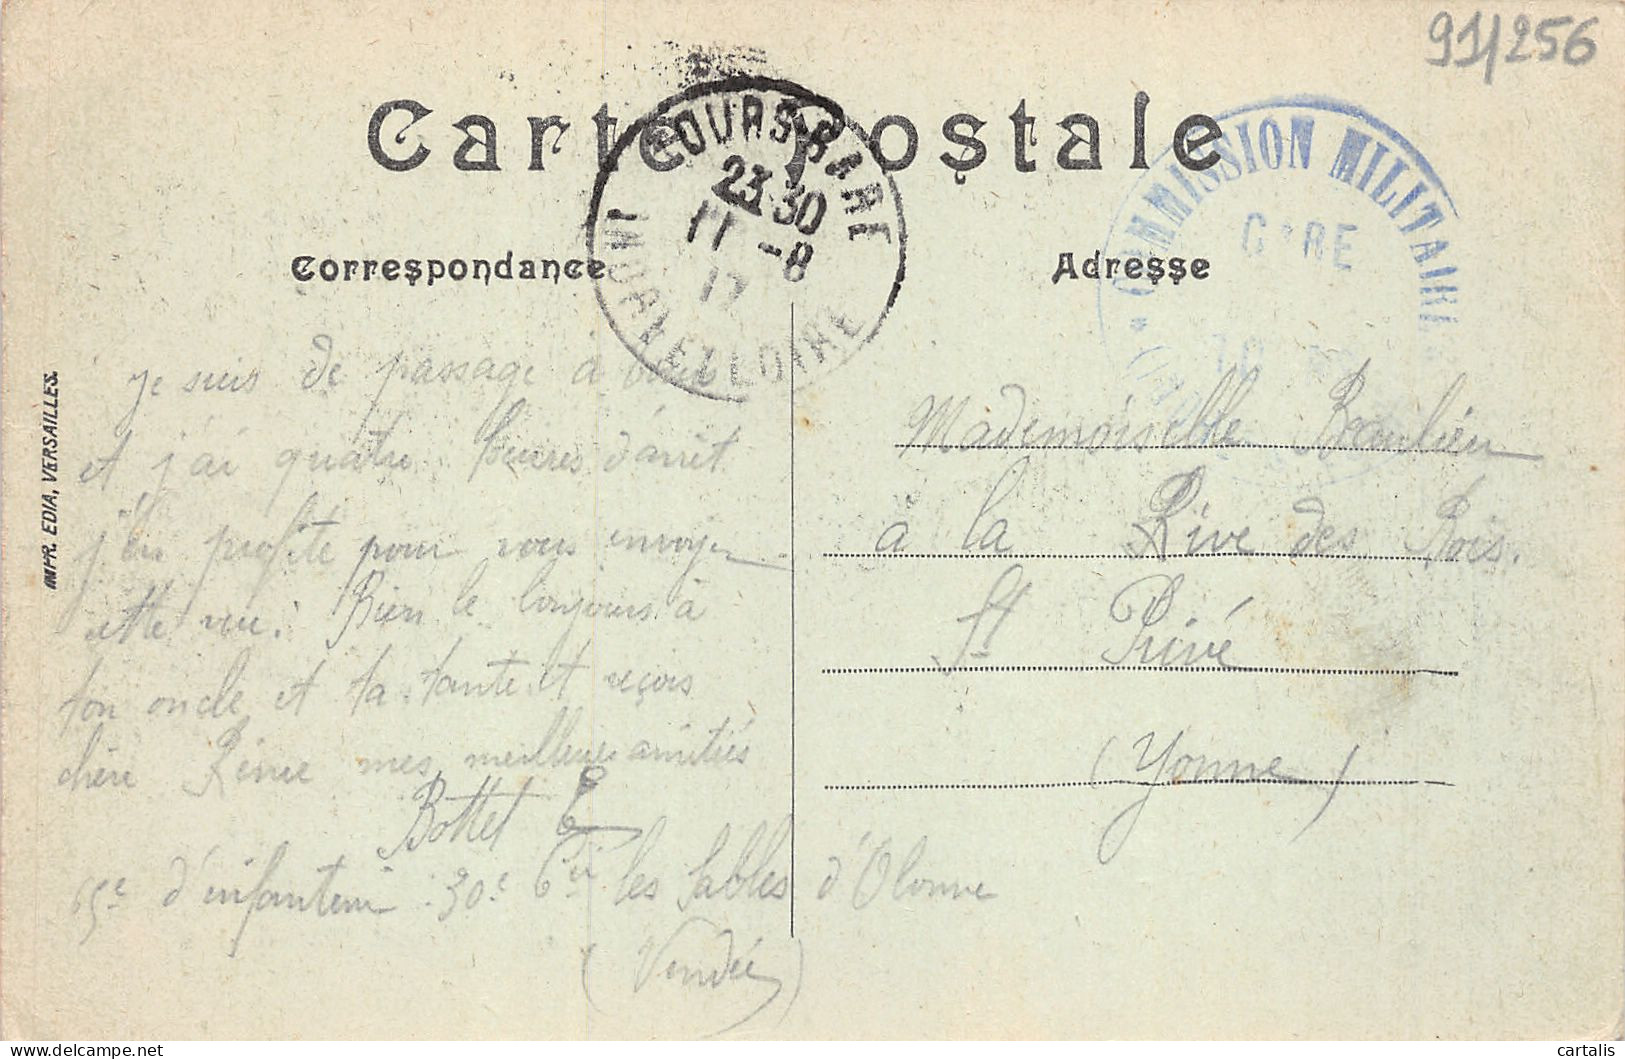 91/256
Carte Postale
TOURS-GARE
23 30
11 -8
17
INDRE ET LOIRE
COMMISSION MILITAIRE
GARE
Correspondance
Adresse
IMP. EDIA, VERSAILLES.
Je suis de passage à
et j'ai quatre heures d'arrêt
j'en profite pour vous envoyer
cette vue. Bien le bonjours à
ton oncle et ta tante et reçois
chère Reine mes meilleures amitiés
Bottet
65e d'infanterie 30e Cie les Sables d'Olonne
(Vendée)
Mademoiselle Beaulieu
à la Rive des Bois.
St Privé
(Yonne)
cartalis